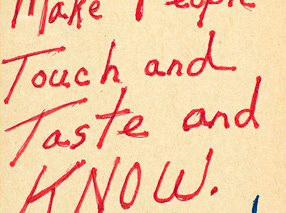 Make People
Touch and
Taste and
KNOW.